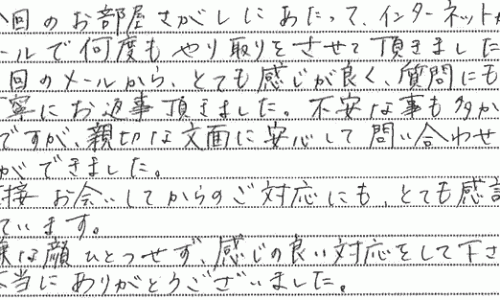 回のお部屋さがしにあたって、インターネット
ールで何度もやり取りをさせて頂きました
回のメールから、とても感じが良く、質問にも
寧にお返事頂きました。不安な事も多か
ですが、親切な文面に安心して問い合わせ
ができました。
接お会いしてからのご対応にも、とても感
ています。
な顔ひとつせず、感じの良い対応をして下さ
当にありがとうございました。